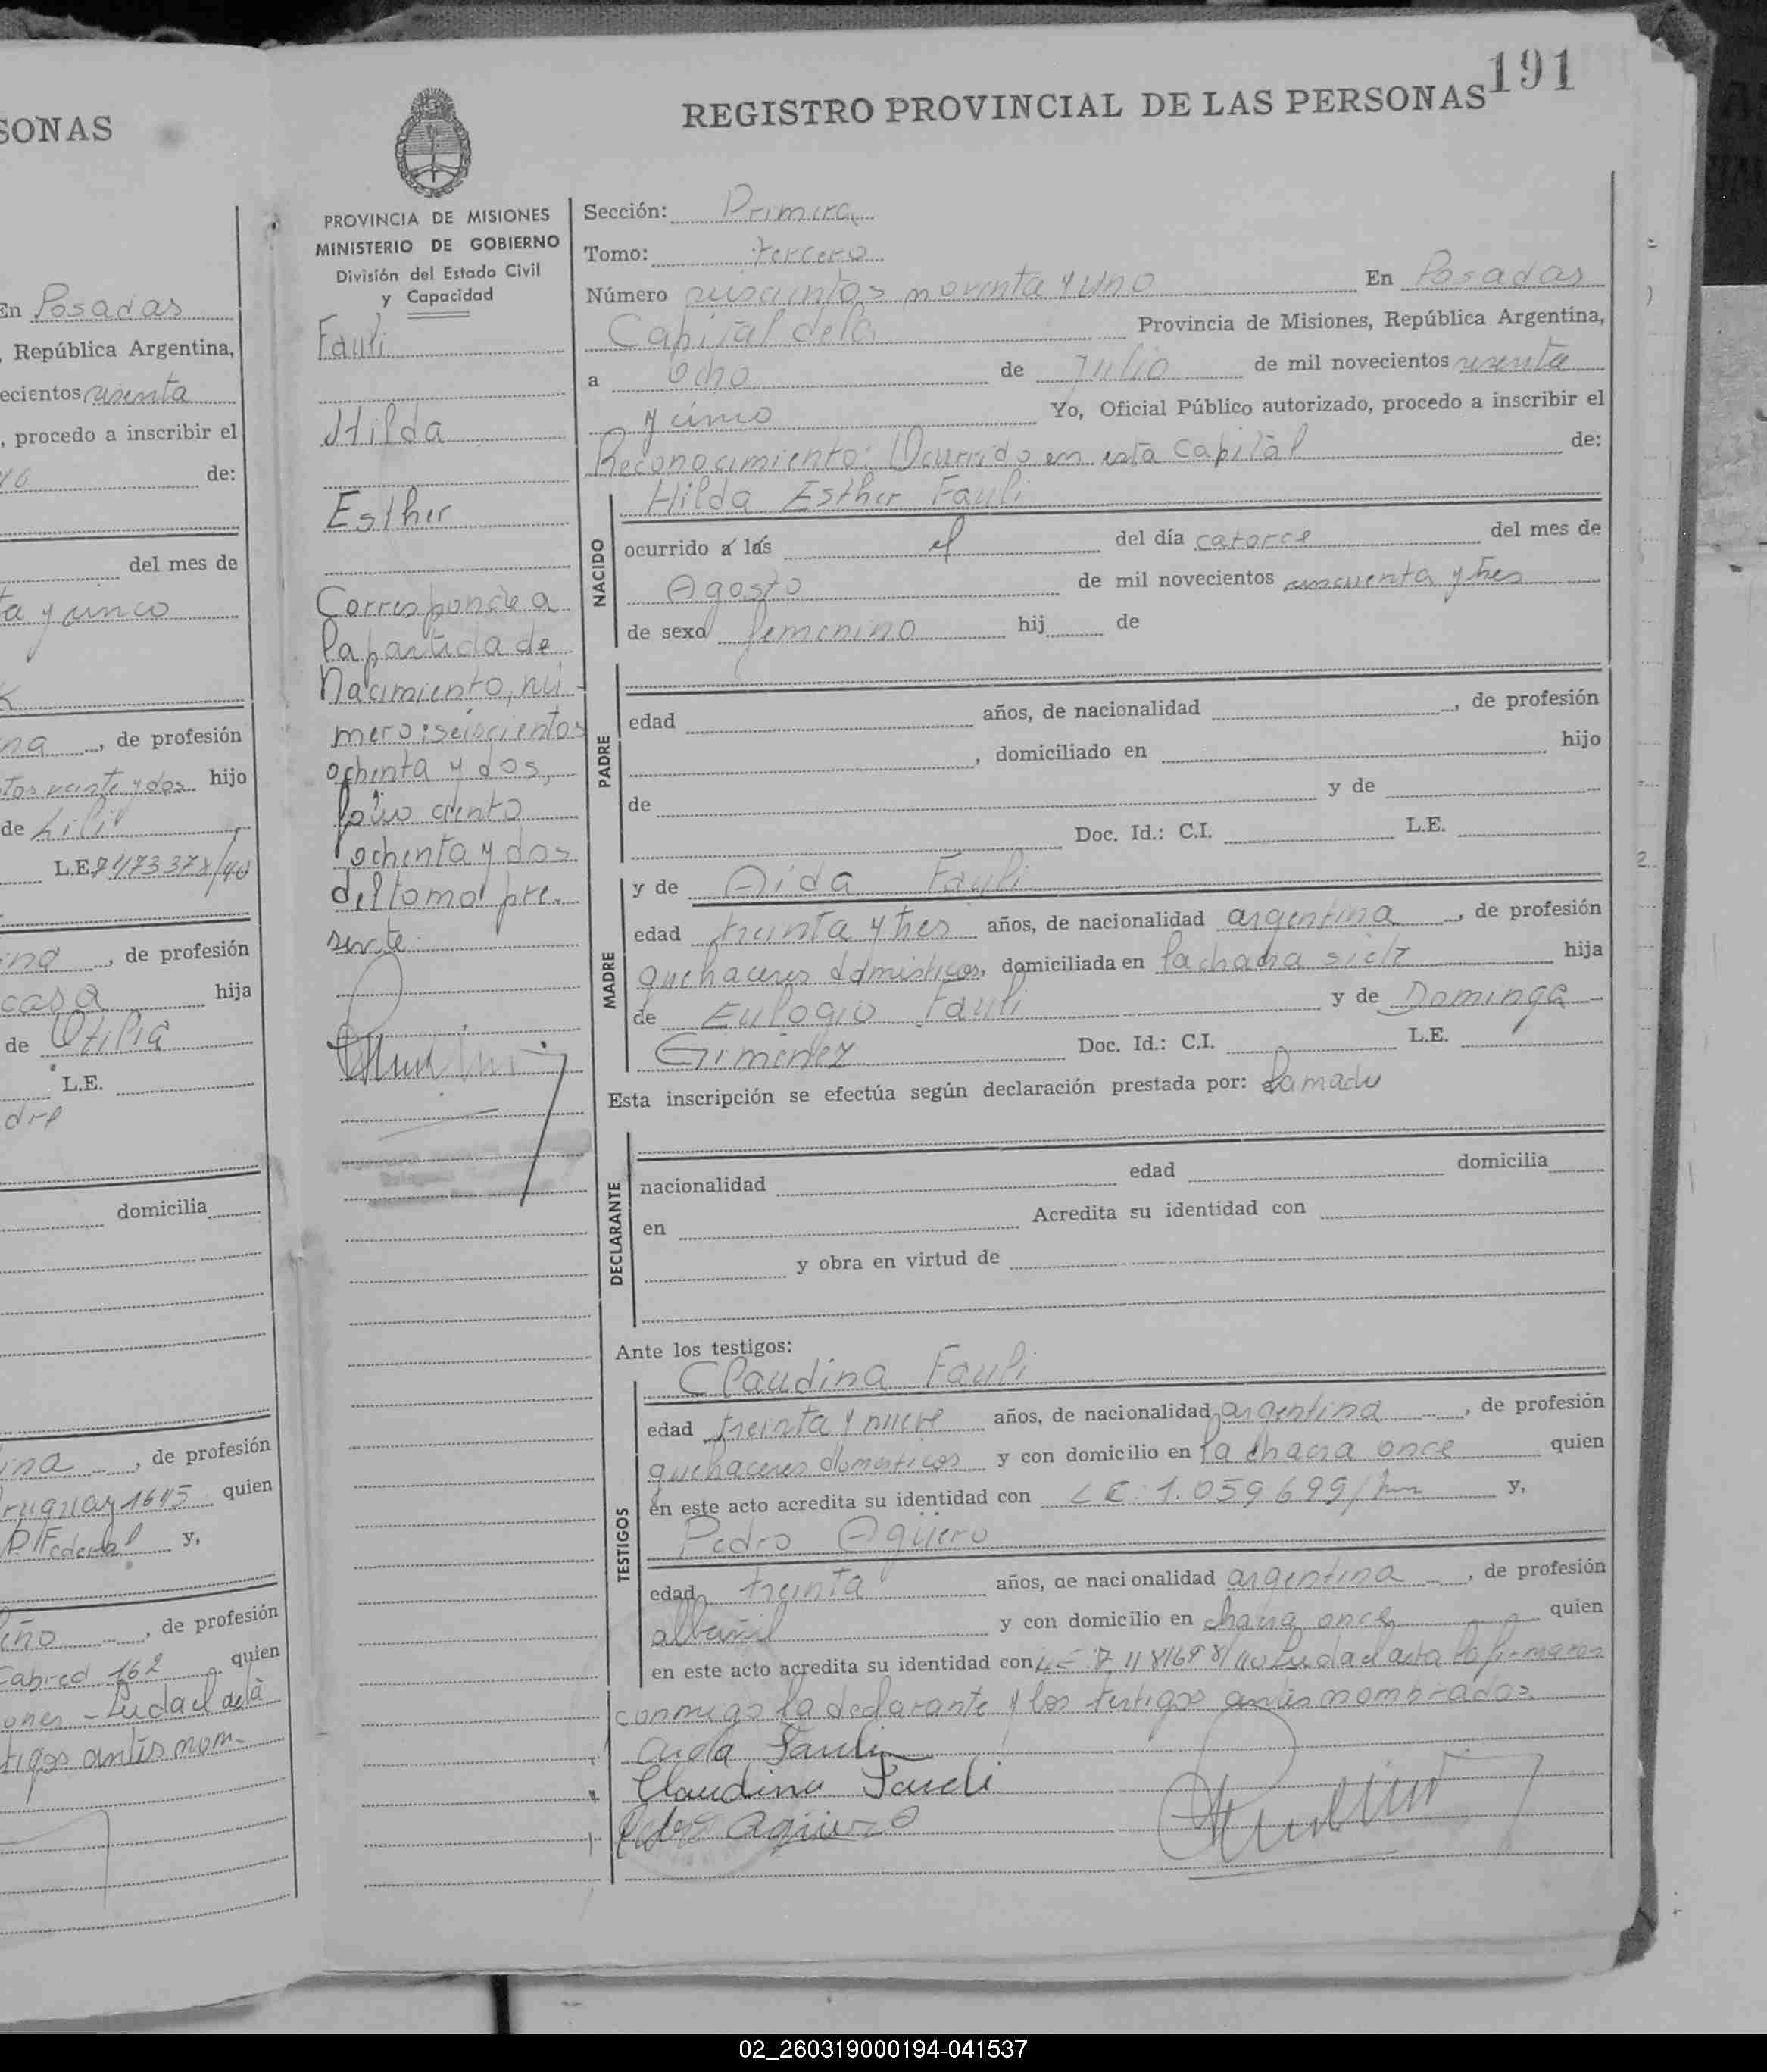 SONAS
En Posadas
, República Argentina,
ecientos sesenta
, procedo a inscribir el
de:
del mes de
ta y cinco
na, de profesión
tos veinte y dos hijo
de Lili
L.E. 7473378/40
ina, de profesión
casa hija
de Otilia
L.E.
dre
domicilia
ina, de profesión
ruguay 1645 quien
P. Federal y,
eño, de profesión
Cabred 162 quien
ones - Leida el acta
tigos antes nom-
191
REGISTRO PROVINCIAL DE LAS PERSONAS
PROVINCIA DE MISIONES
MINISTERIO DE GOBIERNO
División del Estado Civil
y Capacidad
Fauli
Hilda
Esther
Corresponde a
la partida de
Nacimiento, nú-
mero: seiscientos
ochenta y dos,
folio ciento
ochenta y dos
del tomo pre-
sente.
Sección: Primera
Tomo: tercero
Número seiscientos noventa y uno En Posadas
Capital de la Provincia de Misiones, República Argentina,
a Ocho de Julio de mil novecientos sesenta
y cinco Yo, Oficial Público autorizado, procedo a inscribir el
Reconocimiento: Ocurrido en esta Capital de:
NACIDO
Hilda Esther Fauli
ocurrido a las el del día catorce del mes de
Agosto de mil novecientos cincuenta y tres
de sexo femenino hij de
PADRE
edad años, de nacionalidad , de profesión
, domiciliado en hijo
de y de
Doc. Id.: C.I. L.E.
MADRE
y de Aida Fauli
edad treinta y tres años, de nacionalidad argentina, de profesión
quehaceres domésticos, domiciliada en la chacra siete hija
de Eulogio Fauli y de Dominga
Gimenez Doc. Id.: C.I. L.E.
Esta inscripción se efectúa según declaración prestada por: la madre
DECLARANTE
nacionalidad edad domicilia
en Acredita su identidad con
y obra en virtud de
Ante los testigos:
TESTIGOS
Claudina Fauli
edad treinta y nueve años, de nacionalidad argentina, de profesión
quehaceres domesticos y con domicilio en la chacra once quien
en este acto acredita su identidad con L C. 1.059699 y,
Pedro Agüero
edad treinta años, de nacionalidad argentina, de profesión
albañil y con domicilio en chacra once quien
en este acto acredita su identidad con Leida el acta la firmaron
conmigo la declarante y los testigos antes nombrados.
Aida Fauli
Claudina Fauli
Pedro Agüero
02_260319000194-041537